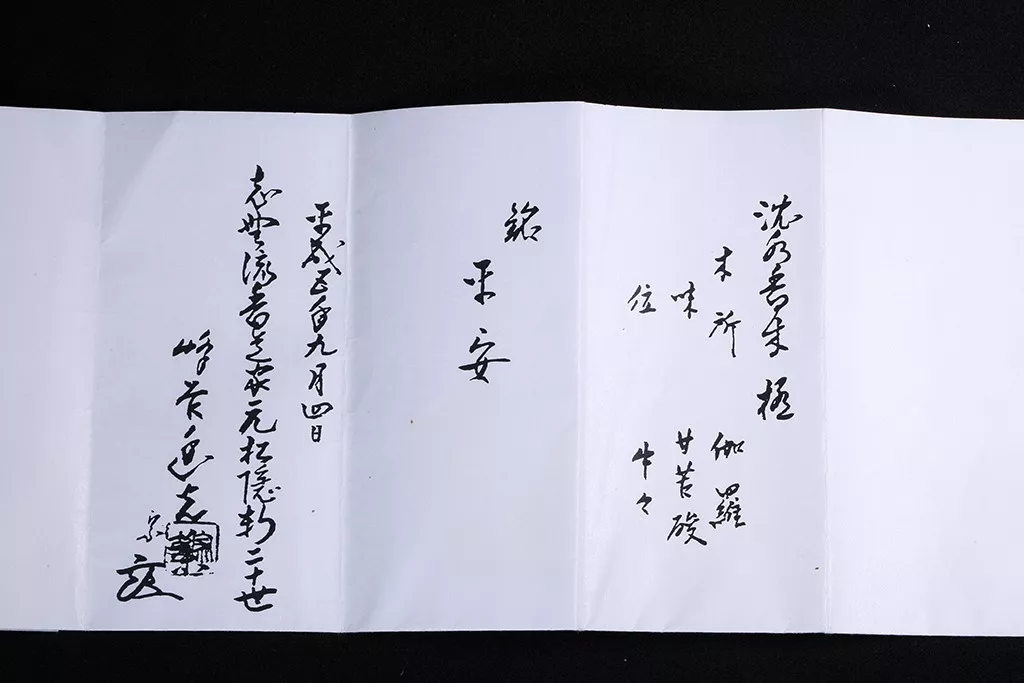 沈水香木 極
木所 伽羅
味 甘苦酸
位 中々
銘
平安
平成五年九月四日
志野流香道家元松隠軒二十世
蜂谷幽光斎
宗